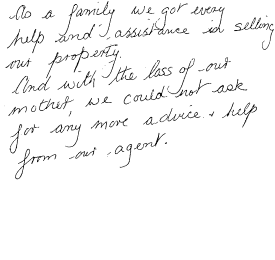 As a family we got every
help and assistance in selling
our property.
And with the loss of our
mother, we could not ask
for any more advice & help
from our agent.